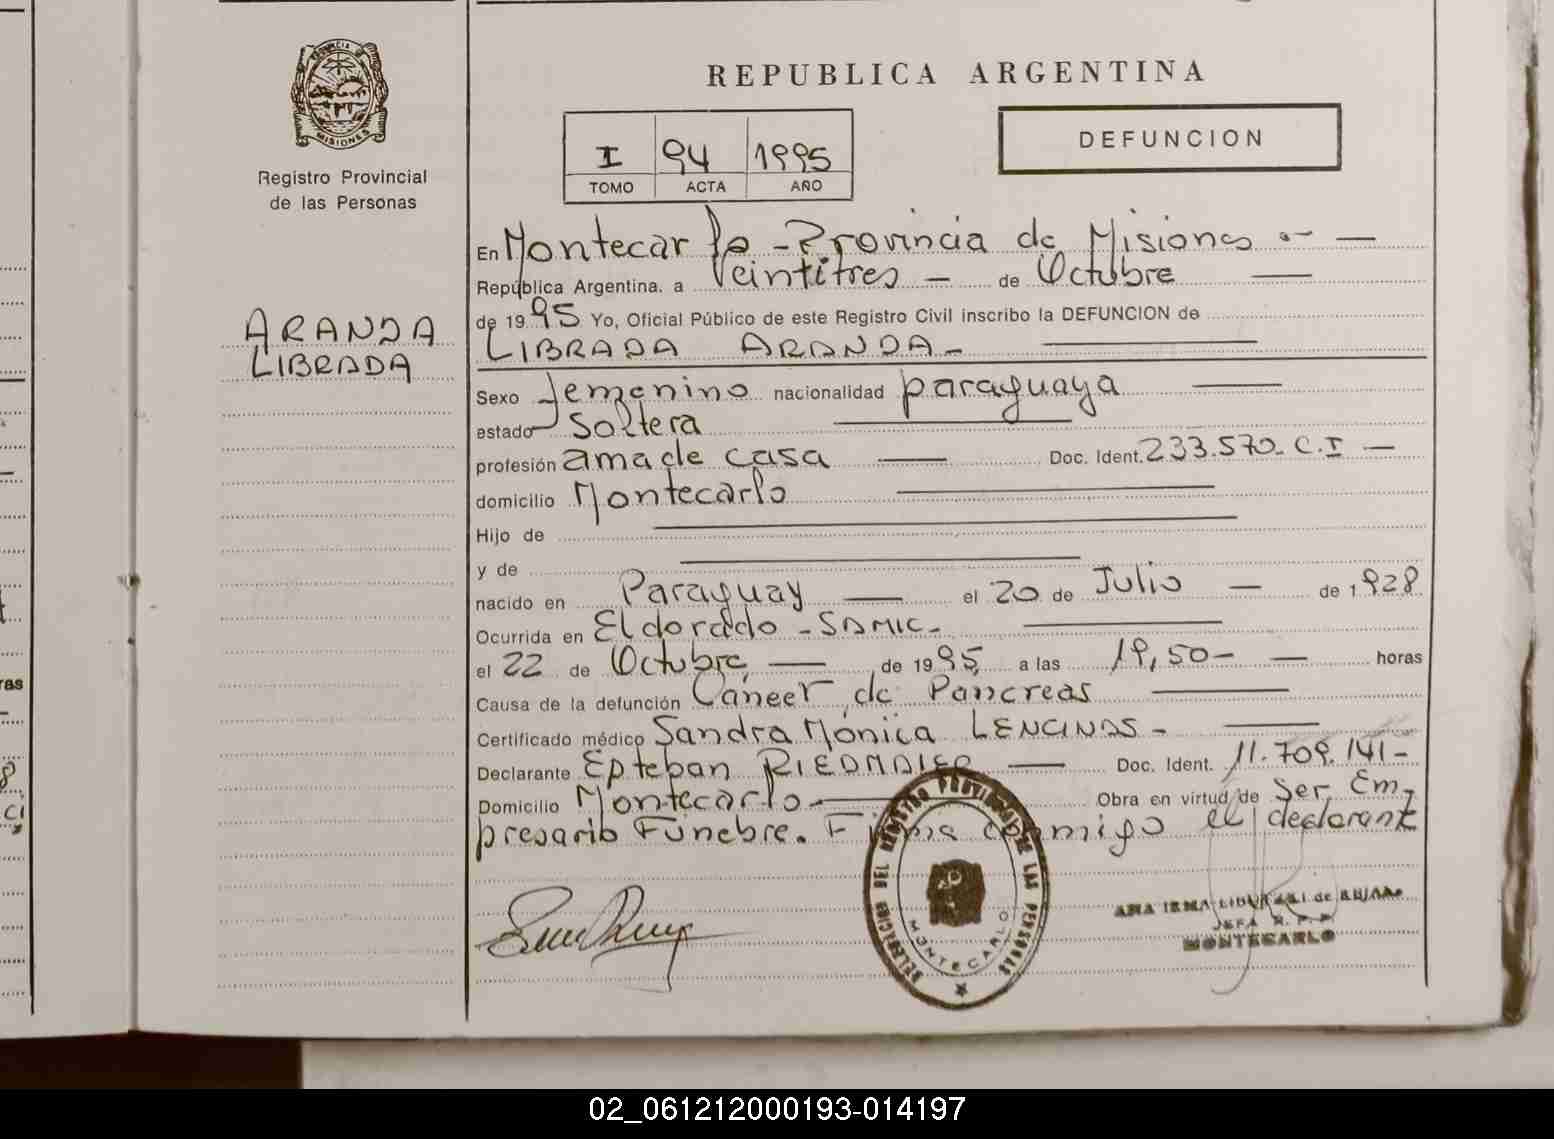 PROVINCIA DE
MISIONES
Registro Provincial
de las Personas
ARANDA
LIBRADA
REPUBLICA ARGENTINA
I 94 1995
TOMO ACTA AÑO
DEFUNCION
En Montecarlo - Provincia de Misiones
República Argentina. a Veintitres - de Octubre
de 1995 Yo, Oficial Público de este Registro Civil inscribo la DEFUNCION de
LIBRADA ARANDA -
Sexo femenino nacionalidad paraguaya
estado Soltera
profesión ama de casa Doc. Ident. 233.570. C.I -
domicilio Montecarlo
Hijo de
y de
nacido en Paraguay el 20 de Julio - de 1928
Ocurrida en Eldorado - SAMIC -
el 22 de Octubre de 1995 a las 19,50 - horas
Causa de la defunción Cáncer de Pancreas
Certificado médico Sandra Mónica LENCINAS -
Declarante Epteban RIEDMAIER Doc. Ident. 11.709.141 -
Domicilio Montecarlo Obra en virtud de Ser Em-
presario Fúnebre. Firma conmigo el declarante
DELEGACION DEL REGISTRO PROVINCIAL DE LAS PERSONAS
MONTECARLO
ANA IRMA de
JEFA R.P.P
MONTECARLO
ras
02_061212000193-014197